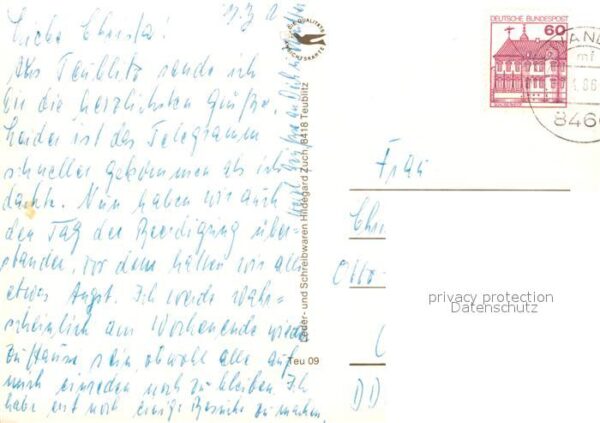 Liebe Christa!
Aus Teublitz sende ich
Dir die herzlichsten Grüße.
Leider ist das Telegramm
schneller gekommen als ich
dachte. Nun haben wir auch
den Tag der Beerdigung über=
standen, vor dem hatten wir alle
etwas Angst. Ich werde wahr=
scheinlich am Wochenende wieder
zu Hause sein, obwohl alle auf
mich einreden noch zu bleiben. Ich
habe erst noch einige Besuche zu machen.
QUALITÄTS
Leder- und Schreibwaren Hildegard Zuch, 8418 Teublitz
Teu 09
DEUTSCHE BUNDESPOST
60
86
846
Frau
Chr
Otto
DD
privacy protection
Datenschutz